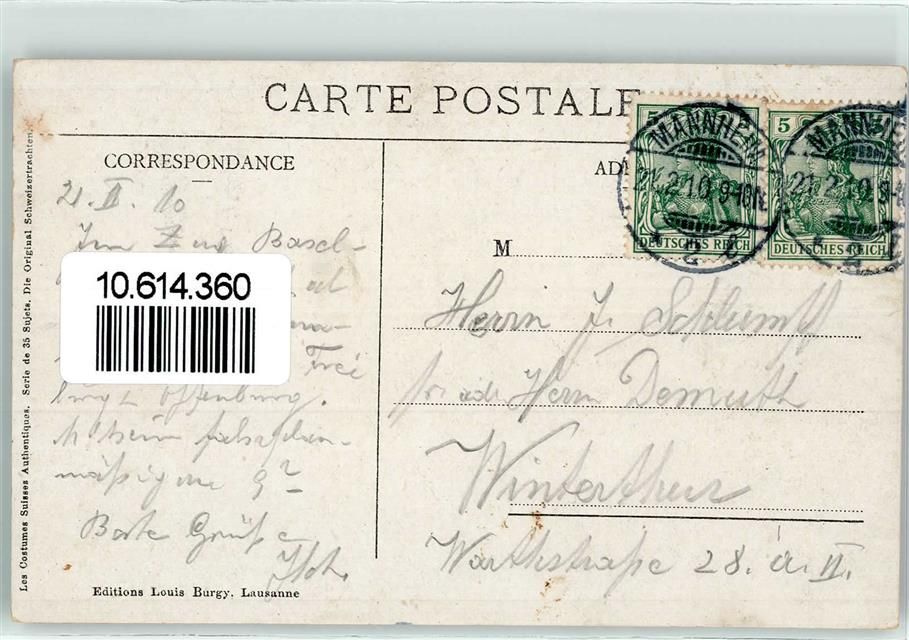 CARTE POSTALE
CORRESPONDANCE
AD
21. II. 10
Im Zug Basel-
10.614.360
Frei
burg - Offenburg.
M'heim fahrplan-
mässig
Beste Grüsse
M
Herrn J. Schlumpf
Herrn Demuth
Winterthur
Warthstraße 28. a. II.
5
5
DEUTSCHES REICH
DEUTSCHES REICH
MANNHEIM
21.2.10.9-10N.
MANNHEIM
21.2.10.9-
Editions Louis Burgy. Lausanne
Les Costumes Suisses Authentiques. Serie de 35 Sujets. Die Original Schweizertrachten.